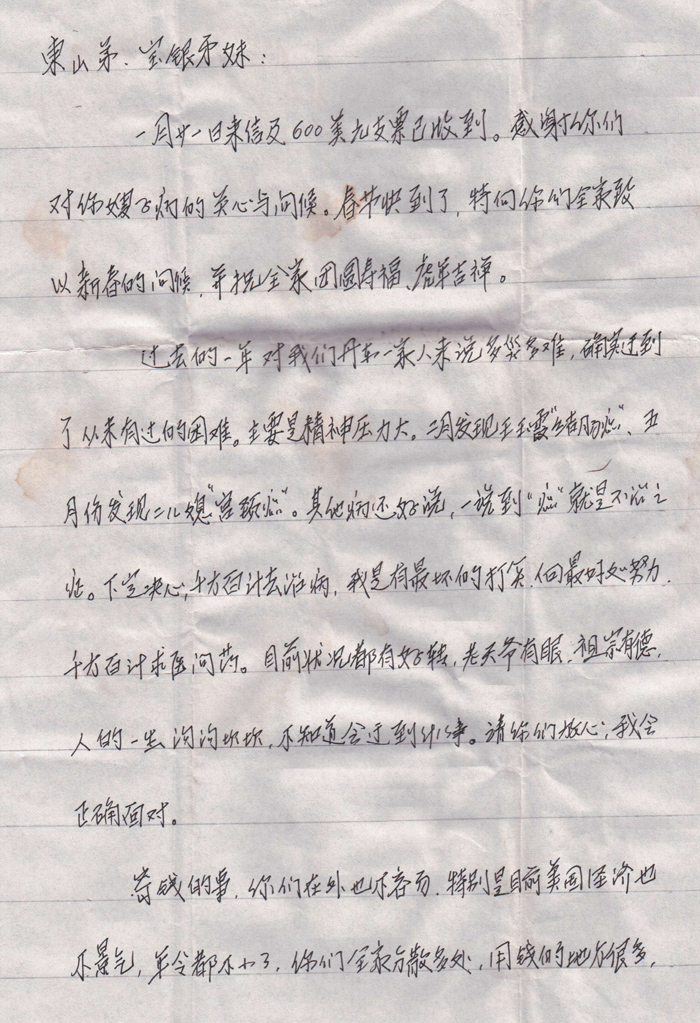 東山弟、宝银弟妹：
一月廿一日来信及600美元支票已收到。感谢你们
对你嫂子病的关心与问候。春节快到了，特向你们全家致
以新春的问候，并祝全家团圆寿福、虎年吉祥。
过去的一年对我们丹东一家人来说多灾多难，确实遇到
了从来有过的困难。主要是精神压力大。二月发现王玉霞“结肠癌”、五
月份发现二儿媳“宫颈癌”。其他病还好说，一说到“癌”就是不治之
症。下定决心，千方百计去治病，我是有最坏的打算，向最好处努力，
千方百计求医问药。目前状况都有好转，老天爷有眼，祖宗有德，
人的一生沟沟坎坎，不知道会遇到什么事。请你们放心，我会
正确面对。
寄钱的事，你们在外也不容易，特别是目前美国经济也
不景气，年令都不小了，你们全家分散多处，用钱的地方很多，